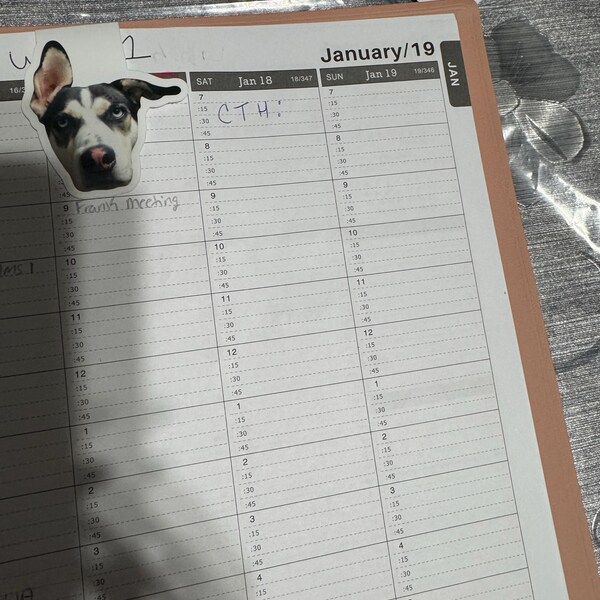 January/19
JAN
SAT Jan 18 18/347
7
:15 CTH:
:30
:45
8
:15
:30
:45
9
:15
:30
:45
10
:15
:30
:45
11
:15
:30
:45
12
:15
:30
:45
1
:15
:30
:45
2
:15
:30
:45
3
:15
:30
:45
4
:15
SUN Jan 19 19/346
7
:15
:30
:45
8
:15
:30
:45
9
:15
:30
:45
10
:15
:30
:45
11
:15
:30
:45
12
:15
:30
:45
1
:15
:30
:45
2
:15
:30
:45
3
:15
:30
:45
4
:15
:30
:45
9 Frank meeting
:15
:30
:45
10
:15
:30
:45
11
:15
:30
:45
12
:15
:30
:45
1
:15
:30
:45
2
:15
:30
:45
3
:15
:30
:45